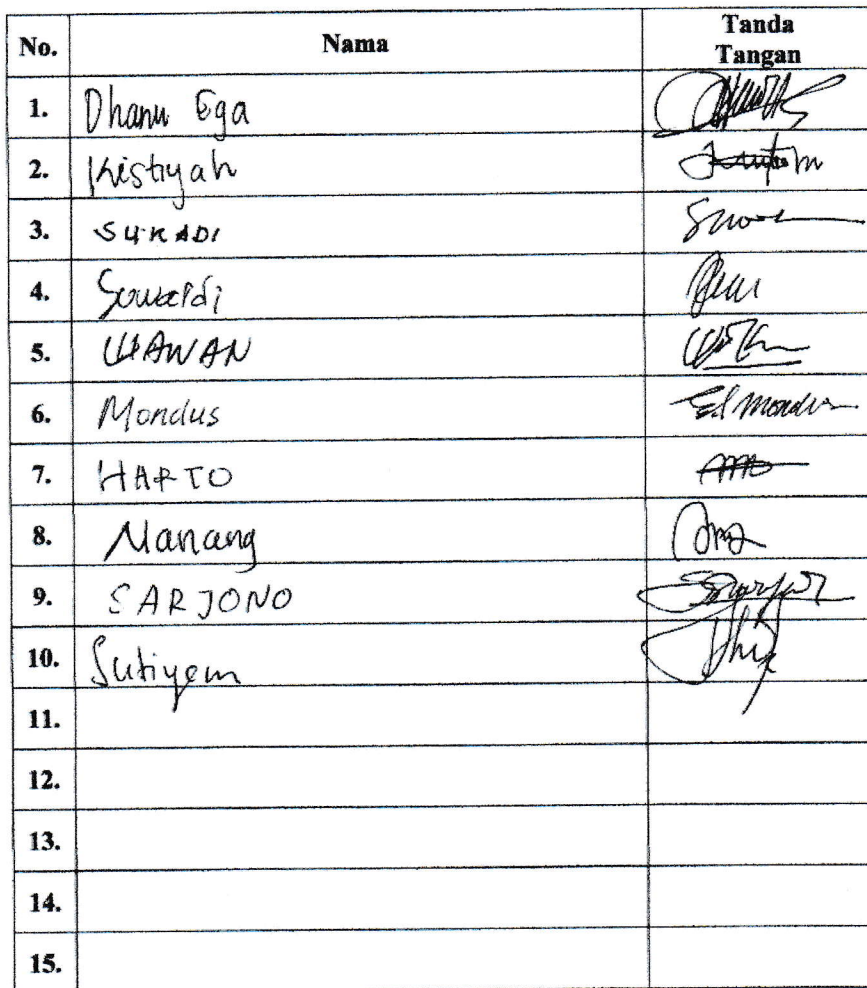 No. Nama Tanda Tangan
1. Dhanu Ega
2. Kistiyah
3. SUKADI
4. Suwardi
5. WAWAN
6. Mondus Edmondus
7. HARTO
8. Nanang
9. SARJONO
10. Sutiyem
11.
12.
13.
14.
15.